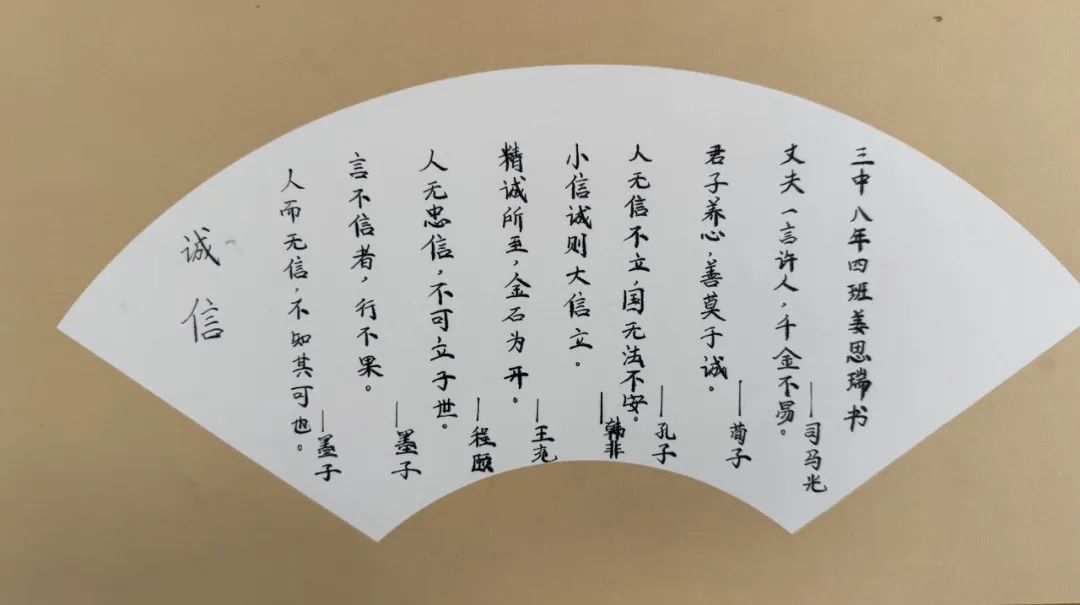 诚信
人而无信，不知其可也。
——墨子
言不信者，行不果。
——墨子
人无忠信，不可立于世。
——程颐
精诚所至，金石为开。
——王充
小信诚则大信立。
——韩非
人无信不立，国无法不安。
——孔子
君子养心，善莫于诚。
——荀子
丈夫一言许人，千金不易。
——司马光
三中八年四班姜思瑞书